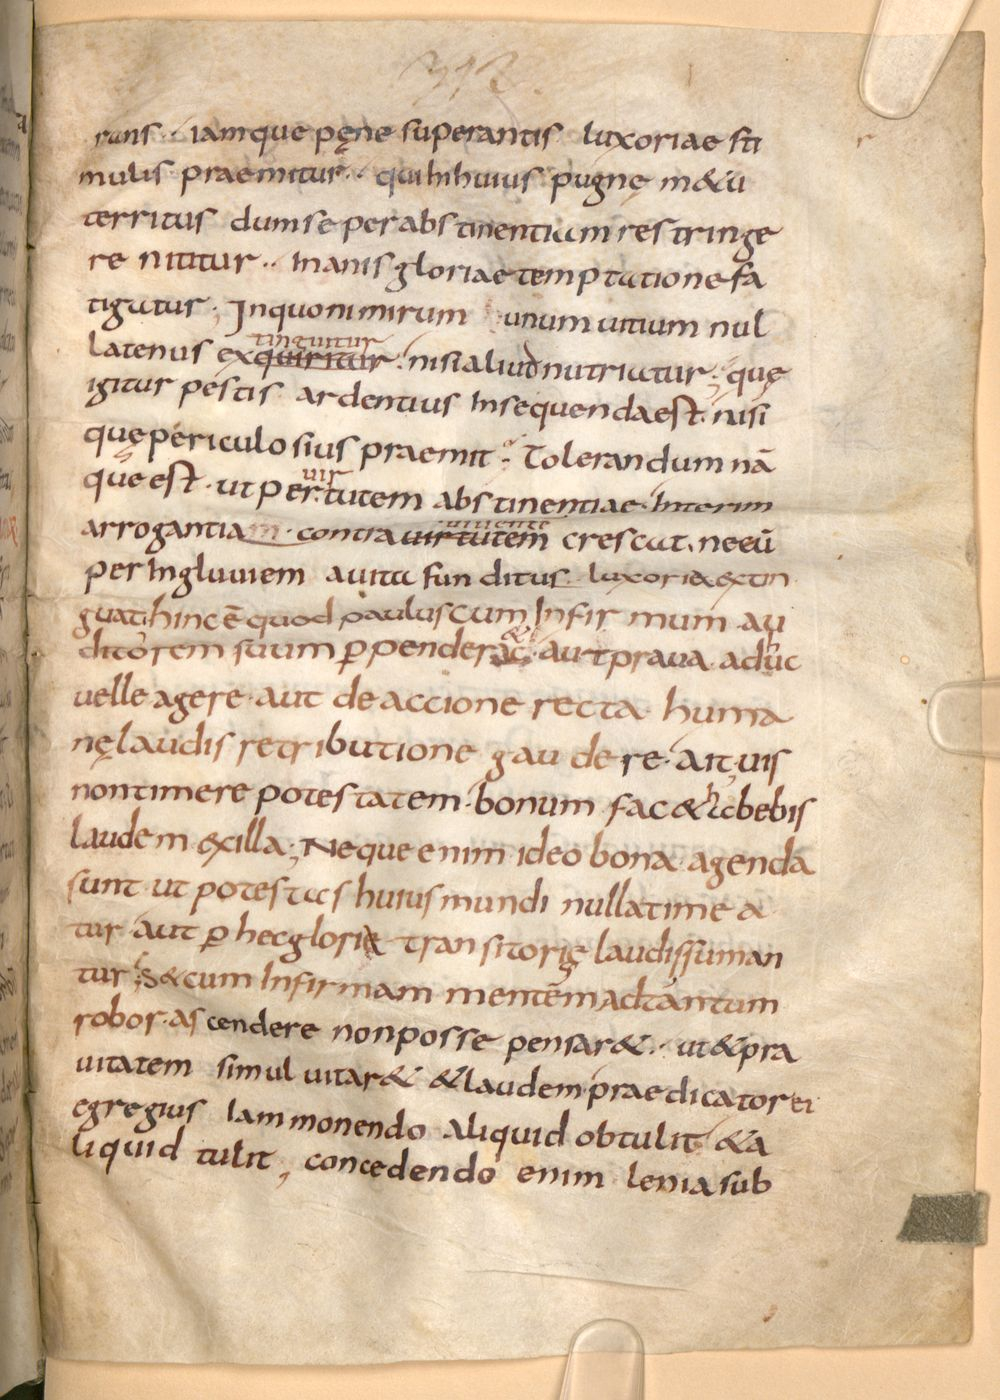 313
rans · iamque pęne superantis luxoriae sti
mulis praemitur · qui hihuius pugnę m&u
territus dum se per abstinentiam restringe
re nititur · Inanis gloriae temptatione fa
tigatur ; In quo nimirum unum uitium nul
tinguitur
latenus exquiritur · nisi aliud nutriatur ; quę
igitur pestis ardentius Insequenda est · nisi
quę periculosius praemit ; Tolerandum nā
uir
que est · ut per tutem abstinentiae · Interim
uiuente
arrogantiam · contra uirtutem crescat · ne eū
per Ingluuiem a uita funditus luxoria extin
guat hinc ē quod paulus cum Infirmum au
&
ditorem suum ꝑpenderac · aut praua adhuc
uelle agere · aut de accione recta huma
nę laudis retributione gaudere · ait uis
non timere potestatem · bonum fac & habebis
laudem ex illa ; Neque enim ideo bona agenda
sunt ut potestas huius mundi nulla timea
tur aut ꝑ hec gloria transitorię laudis suman
tur ; S& cum Infirmam mentēm ad tantum
robor · ascendere non posse pensar& · ut & pra
uitatem simul uitar& & laudem praedicator ei
egregius Iam monendo aliquid obtulit & a
liquid tulit , concedendo enim lenia sub